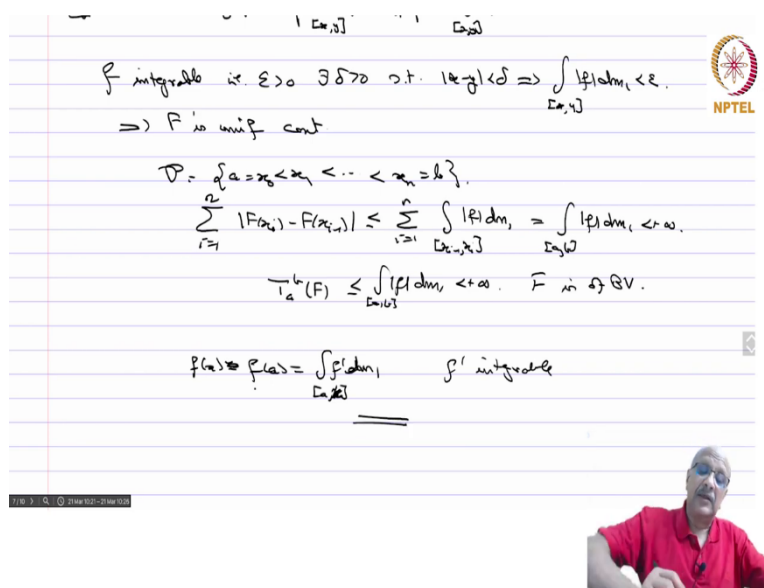 [x,y] [a,b]
f integrable i.e. ε>0 ∃δ>0 s.t. |x-y|<δ ⇒ ∫_{[x,y]} |f|dm₁ < ε.
NPTEL
⇒ F is unif cont
P = {a = x₀ < x₁ < ·· < xₙ = b}.
∑_{i=1}^{n} |F(xᵢ) - F(xᵢ₋₁)| ≤ ∑_{i=1}^{n} ∫_{[xᵢ₋₁,xᵢ]} |f|dm₁ = ∫_{[a,b]} |f|dm₁ < +∞.
T_a^b(F) ≤ ∫_{[a,b]} |f|dm₁ < +∞. F is of BV.
f(x) - f(a) = ∫_{[a,x]} f'dm₁ f' integrable
7/10 21 Mar 10:21 – 21 Mar 10:26